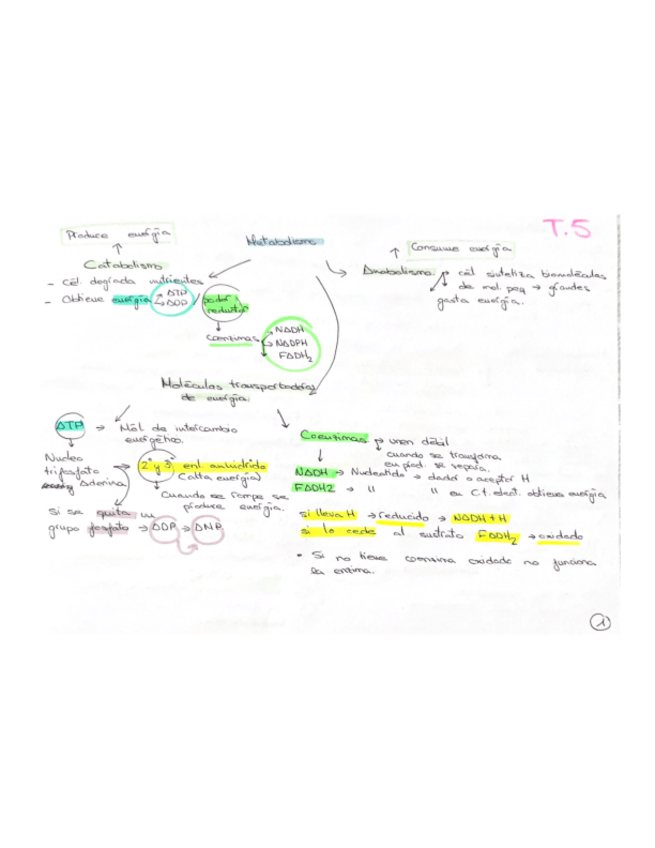 T.5
Produce energía
Metabolismo
Consume energía
Catabolismo
- Cél. degrada nutrientes
- Obtiene energía ATP ADP / poder reductor
coenzimas NADH
NADPH
FADH2
Anabolismo cél sintetiza biomoléculas
de mol. peq → grandes
gasta energía.
Moléculas transportadoras
de energía.
ATP → Mol. de intercambio
energético.
Nucleo
trifosfato
Adenina
2º y 3º enl. anhídrido
(alta energía)
Cuando se rompe se
produce energía.
Si se quita un
grupo fosfato → ADP → AMP
Coenzimas → unen débil
cuando se transforma
en prod. se separa.
NADH → Nucleotido → dador o aceptor H
FADH2 → " " en C.t. elect. obtiene energía
si lleva H → reducido → NADH + H
si lo cede al sustrato FADH2 → oxidado
• Si no tiene coenzima oxidado no funciona
la enzima.
1